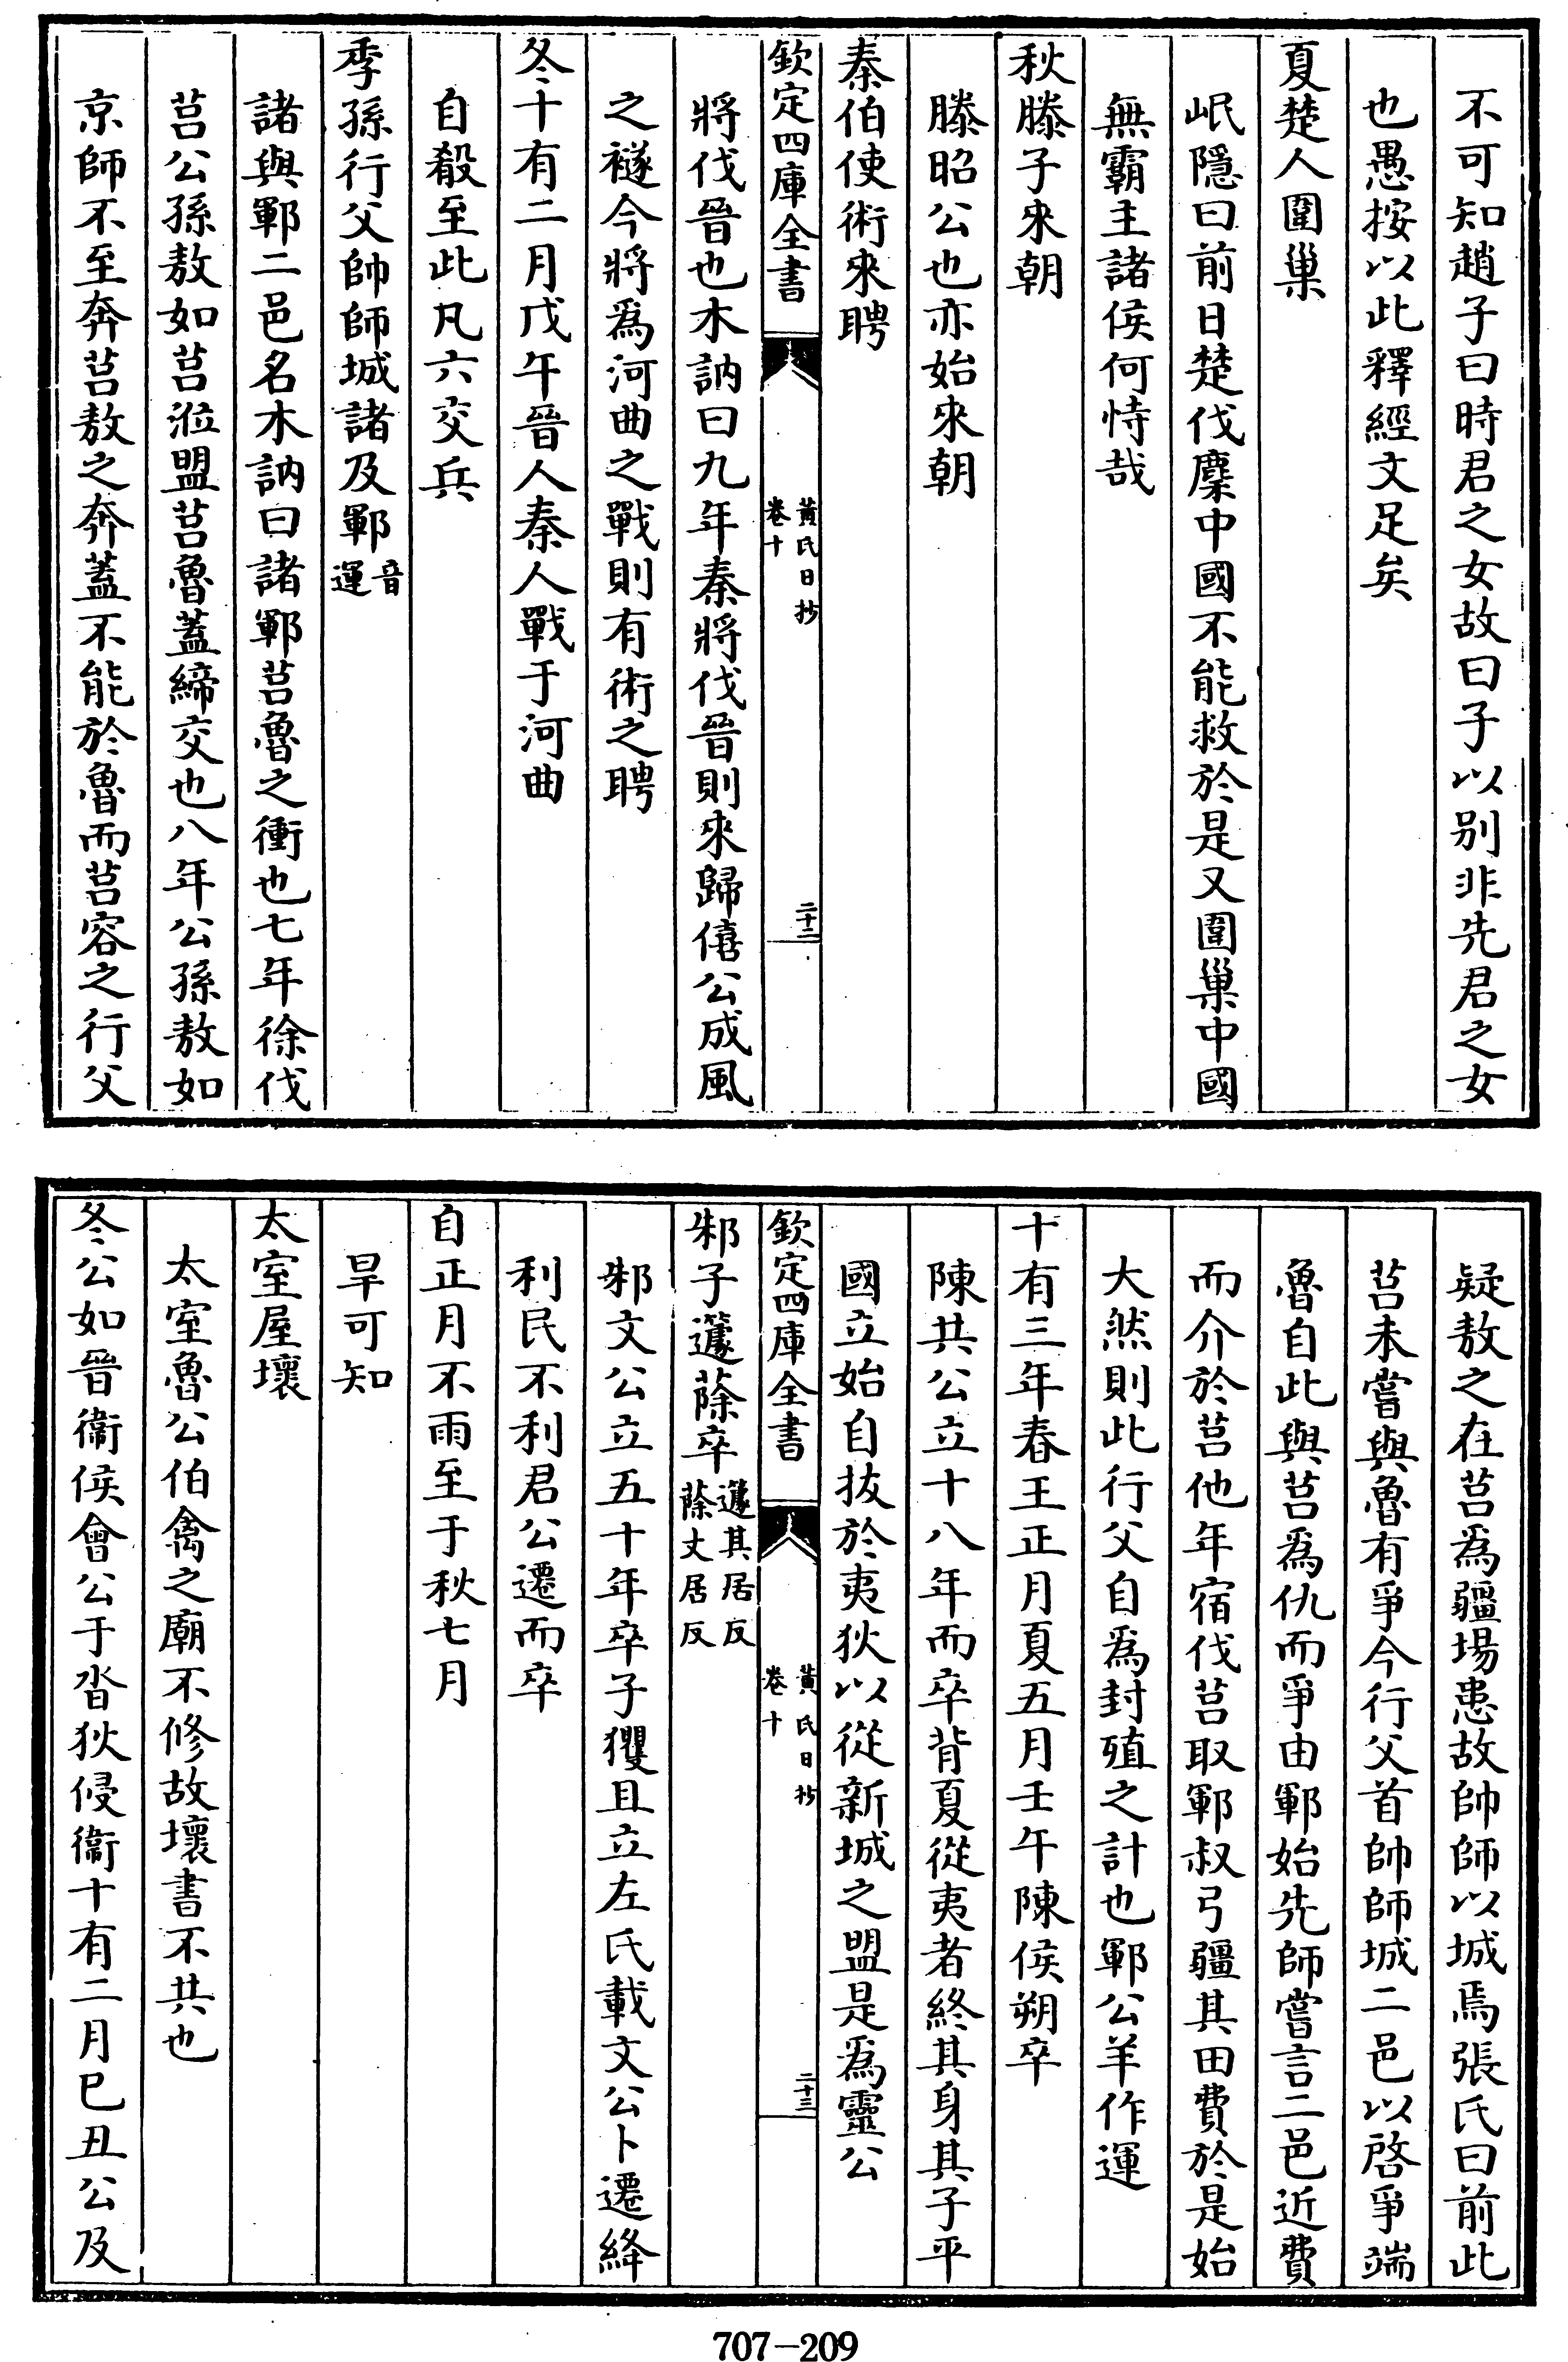 不可知趙子曰時君之女故曰子以别非先君之女
也愚按以此釋經文足矣
夏楚人圍巢
岷隱曰前日楚伐麇中國不能救於是又圍巢中國
無霸主諸侯何恃哉
秋滕子來朝
滕昭公也亦始來朝
秦伯使術來聘
欽定四庫全書
黃氏日抄
卷十
二十二
將伐晉也木訥曰九年秦將伐晉則來歸僖公成風
之襚今將爲河曲之戰則有術之聘
冬十有二月戊午晉人秦人戰于河曲
自殽至此凡六交兵
季孫行父帥師城諸及鄆音
運
諸與鄆二邑名木訥曰諸鄆莒魯之衝也七年徐伐
莒公孫敖如莒涖盟莒魯蓋締交也八年公孫敖如
京師不至奔莒敖之奔蓋不能於魯而莒容之行父
疑敖之在莒爲疆場患故帥師以城焉張氏曰前此
莒未嘗與魯有爭今行父首帥師城二邑以啓爭端
魯自此與莒爲仇而爭由鄆始先師嘗言二邑近費
而介於莒他年宿伐莒取鄆叔弓疆其田費於是始
大然則此行父自爲封殖之計也鄆公羊作運
十有三年春王正月夏五月壬午陳侯朔卒
陳共公立十八年而卒背夏從夷者終其身其子平
國立始自拔於夷狄以從新城之盟是爲靈公
欽定四庫全書
黃氏日抄
卷十
二十三
邾子蘧蒢卒蘧其居反
蒢丈居反
邾文公立五十年卒子玃且立左氏載文公卜遷绛
利民不利君公遷而卒
自正月不雨至于秋七月
旱可知
太室屋壞
太室魯公伯禽之廟不修故壞書不共也
冬公如晉衞侯會公于沓狄侵衞十有二月巳丑公及
707-209